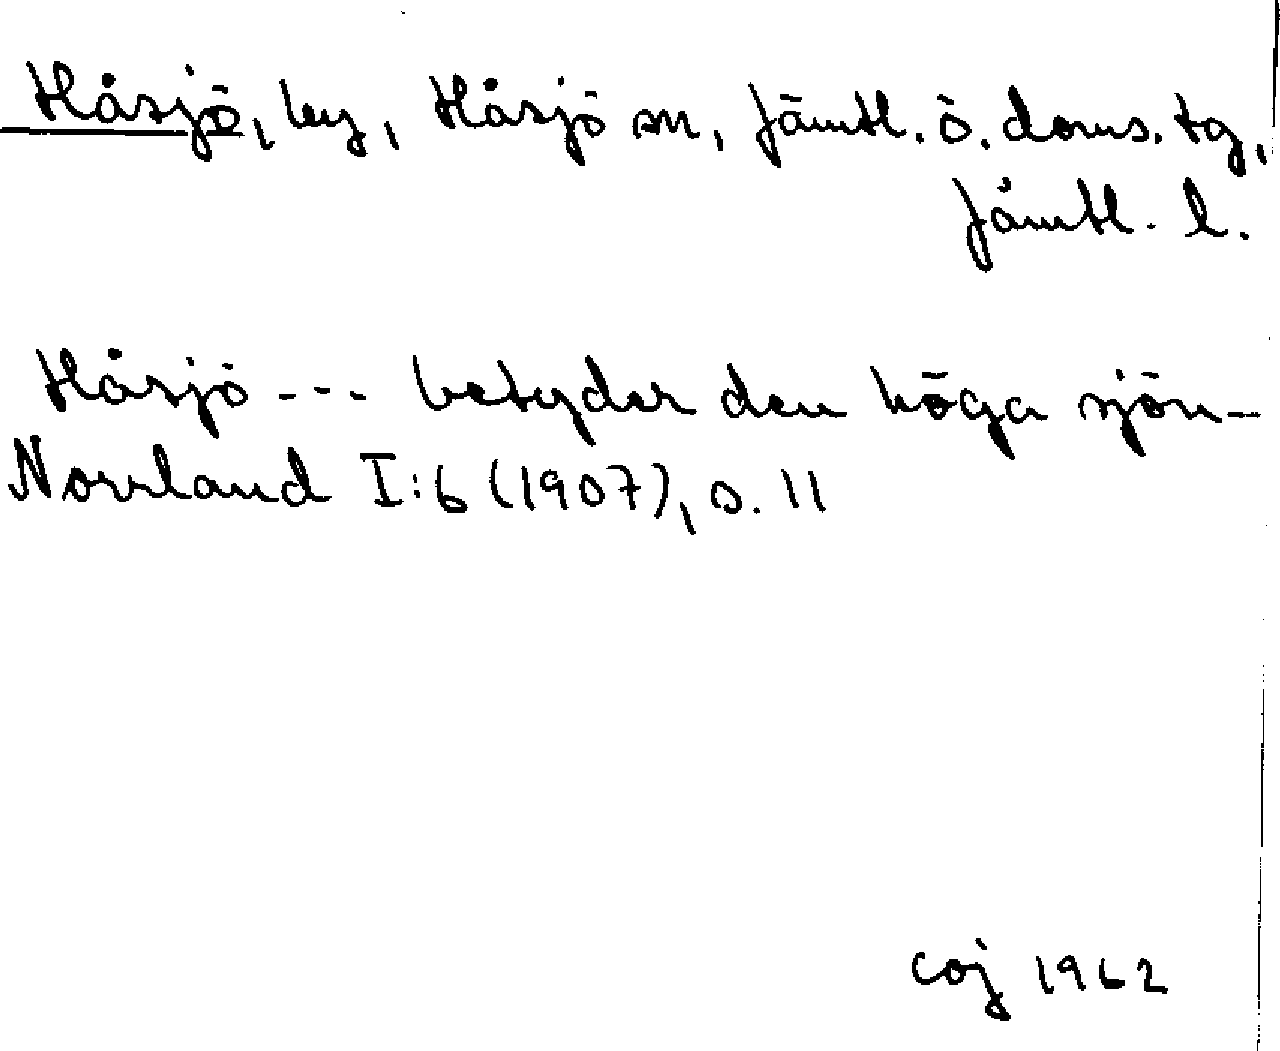 Håsjö, by, Håsjö sn, Jämtl. ö. doms. tg,
Jämtl. l.
Håsjö --- betyder den höga sjön-
Norrland I:6 (1907), s. 11
coj 1962